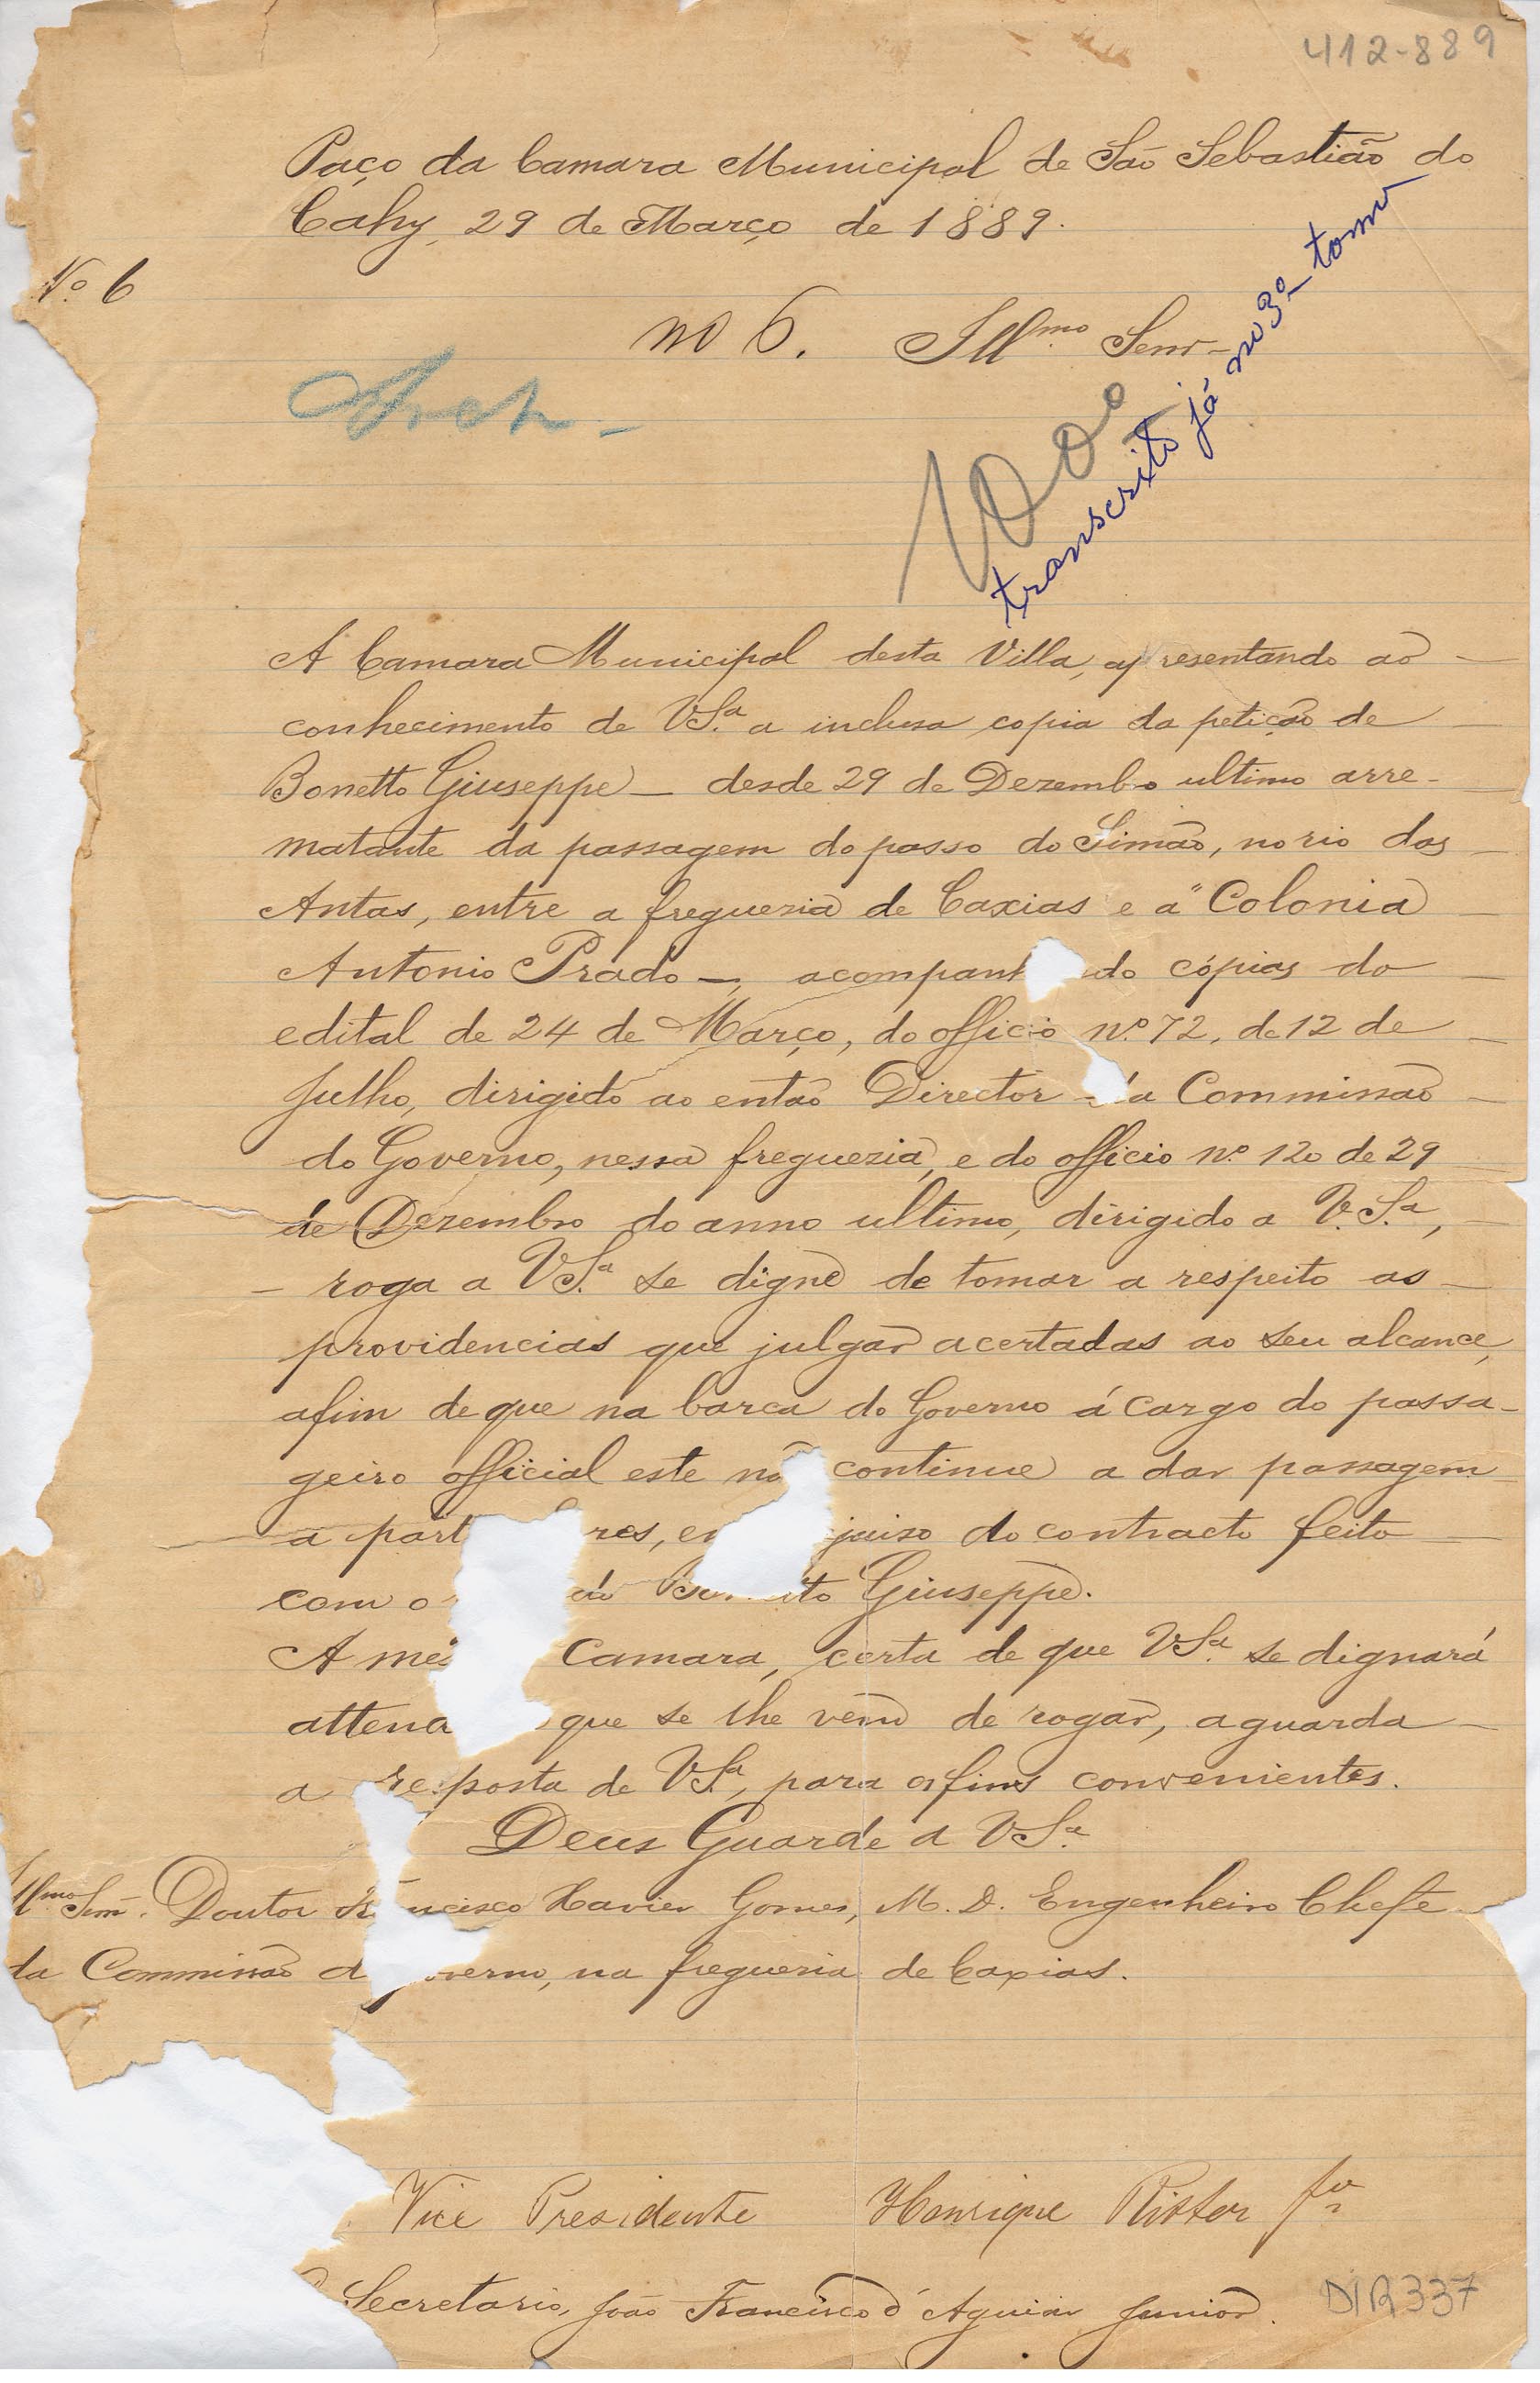 412-889
Paço da Camara Municipal de São Sebastião do
Cahy, 29 de Março de 1889.
Nº 6
no 6. Illmo Senr
Arch
transcrito já no 3º tomo
A Camara Municipal desta Villa, apresentando ao
conhecimento de VSª a inclusa copia da petição de
Bonetto Giuseppe — desde 29 de Dezembro ultimo arre-
matante da passagem do passo do Simão, no rio das
Antas, entre a freguezia de Caxias e a "Colonia
Antonio Prado —, acompanh do cópias do
edital de 24 de Março, do officio nº 72, de 12 de
Julho, dirigido ao então Director da Commissão
do Governo, nessa freguezia, e do officio nº 120 de 29
de Dezembro do anno ultimo, dirigido a V.Sª,
— roga a VSª se digne de tomar a respeito as
providencias que julgar acertadas ao seu alcance,
afim de que na barca do Governo á cargo do passa-
geiro official este não continue a dar passagem
a part res, em juizo do contracto feito
com o Giuseppe.
A me Camara, certa de que VSª se dignará
atten que se lhe vem de rogar, aguarda
a resposta de VSª, para os fins convenientes.
Deus Guarde a VSª
Illmo Senr. Doutor Francisco Xavier Gomes, M. D. Engenheiro Chefe
da Commissão d verno, na freguezia de Caxias.
Vice Presidente Henrique Ritter fo
Secretario, João Francisco d'Aguiar Junior.
DIR 337